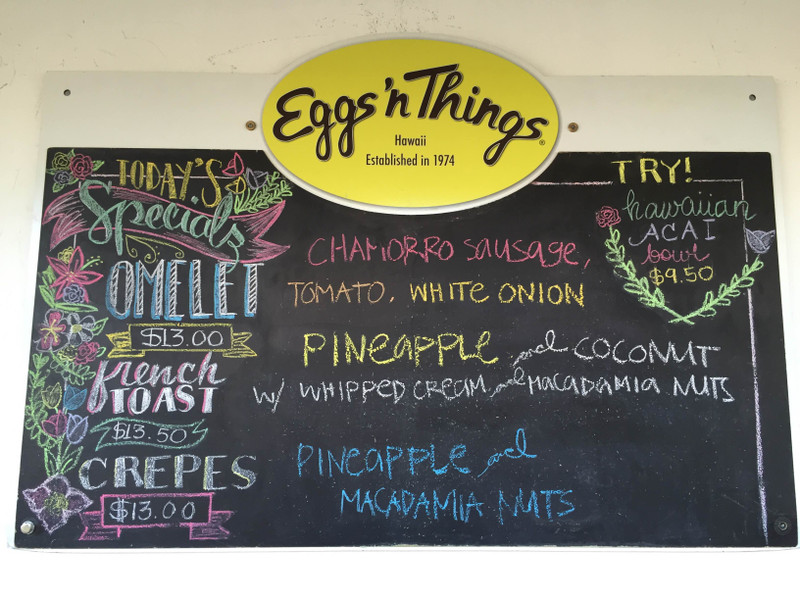 Eggs 'n Things®
Hawaii
Established in 1974
TODAY'S
Specials
OMELET
$13.00
CHAMORRO SAUSAGE,
TOMATO, WHITE ONION
french
TOAST
$13.50
PINEAPPLE and COCONUT
W/ WHIPPED CREAM and MACADAMIA NUTS
CREPES
$13.00
PINEAPPLE and
MACADAMIA NUTS
TRY!
hawaiian
ACAI
bowl
$9.50